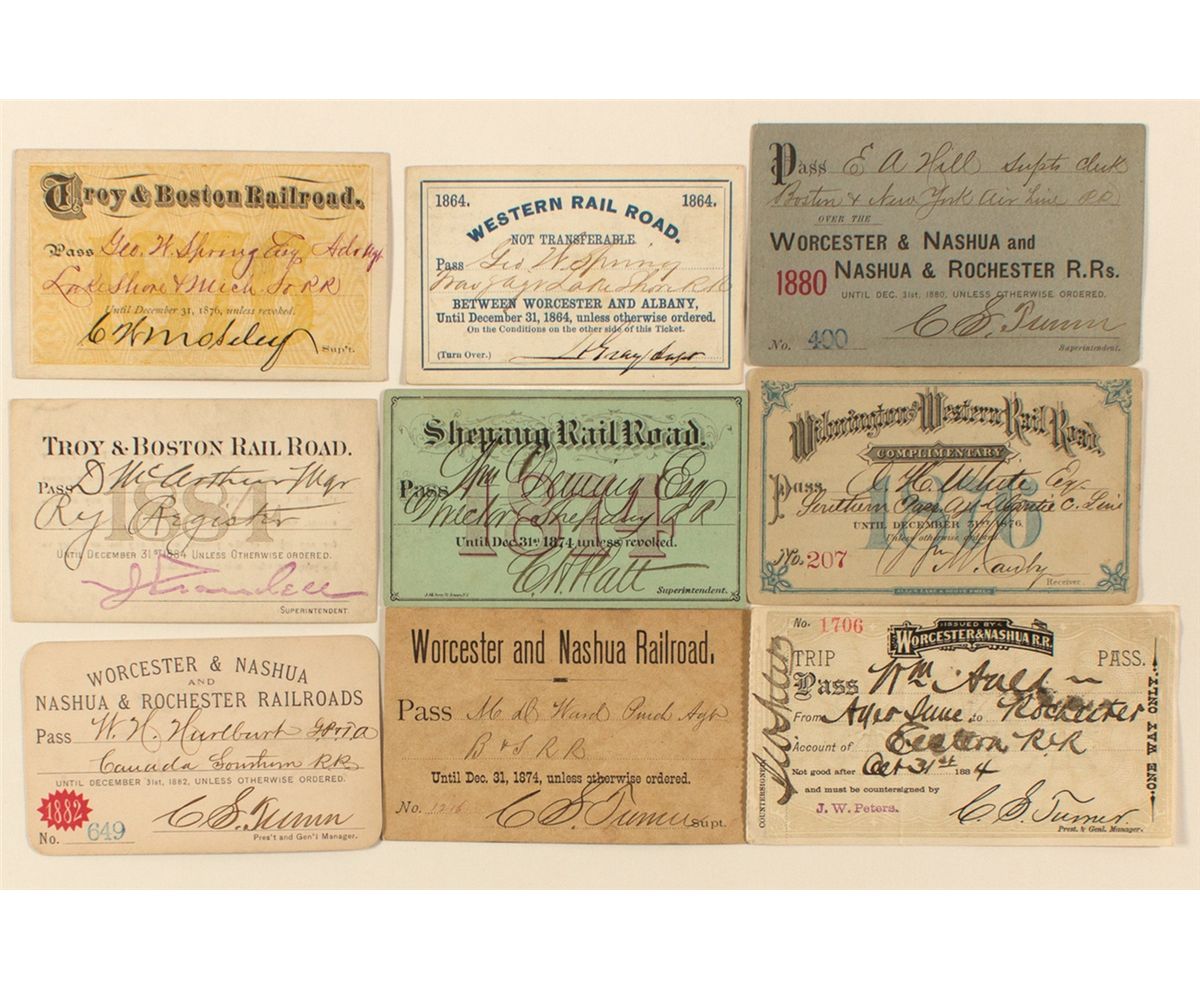 Troy & Boston Railroad.
Pass Geo. W. Spring Esq
Lake Shore & Mich. So RR
Until December 31, 1876, unless revoked.
Sup't.
1864. 1864.
WESTERN RAIL ROAD.
NOT TRANSFERABLE
Pass Geo W Spring
Lake Shore RR
BETWEEN WORCESTER AND ALBANY,
Until December 31, 1864, unless otherwise ordered.
On the Conditions on the other side of this Ticket.
(Turn Over.) H Gray Supt
Pass E A Hill Supts Clerk
Boston & New York Air Line RR
OVER THE
WORCESTER & NASHUA and
1880 NASHUA & ROCHESTER R.Rs.
UNTIL DEC. 31st, 1880, UNLESS OTHERWISE ORDERED.
C. S. Turner
No. 400 Superintendent.
TROY & BOSTON RAIL ROAD.
1884
Pass D McArthur Mgr
Ry Register
UNTIL DECEMBER 31ST 1884 UNLESS OTHERWISE ORDERED.
SUPERINTENDENT.
Shepaug Rail Road.
1874
Pass Wm Deming Esq
Director Shepaug RR
Until Dec. 31st 1874 unless revoked.
Superintendent.
Wilmington & Western Rail Road.
COMPLIMENTARY
1876
Pass White Esq.
Southern Pass Agt Atlantic C. Line
UNTIL DECEMBER 31ST 1876.
Unless otherwise ordered.
No. 207
Receiver.
WORCESTER & NASHUA
AND
NASHUA & ROCHESTER RAILROADS
Pass W. H. Hurlburt
Canada Southern RR
UNTIL DECEMBER 31st, 1882, UNLESS OTHERWISE ORDERED.
1882 C. S. Turner
No. 649 Pres't and Gen'l Manager.
Worcester and Nashua Railroad.
Pass M D Ward Purch Agt
R R
Until Dec. 31, 1874, unless otherwise ordered.
No. C. S. Turner Supt.
No. 1706 ISSUED BY
WORCESTER & NASHUA R.R.
TRIP PASS.
Pass Wm
From Ayer June to Rochester
Account of Eastern RR
Not good after Oct 31st 1884
and must be countersigned by
J. W. Peters.
C. S. Turner
Prest. & Genl. Manager.
COUNTERSIGNED
ONE WAY ONLY.